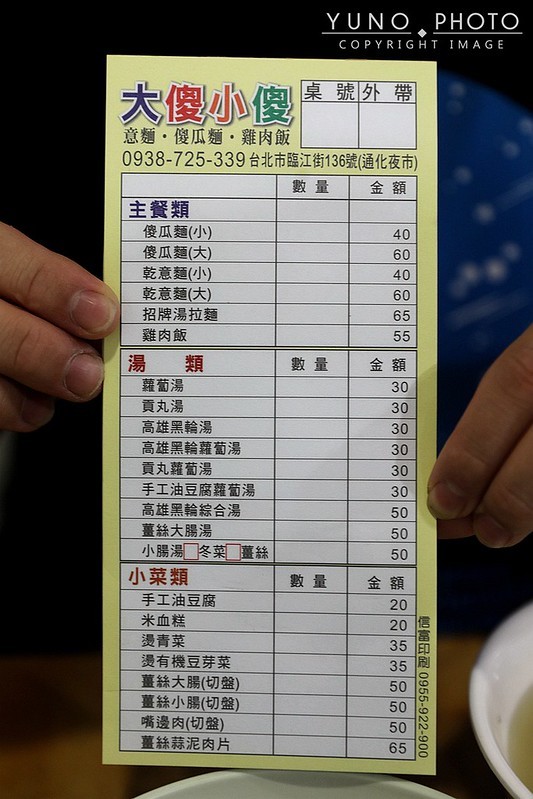 YUNO PHOTO
COPYRIGHT IMAGE
大傻小傻
意麵・傻瓜麵・雞肉飯
桌號 外帶
0938-725-339 台北市臨江街136號(通化夜市)
數量 金額
主餐類
傻瓜麵(小) 40
傻瓜麵(大) 60
乾意麵(小) 40
乾意麵(大) 60
招牌湯拉麵 65
雞肉飯 55
湯類 數量 金額
蘿蔔湯 30
貢丸湯 30
高雄黑輪湯 30
高雄黑輪蘿蔔湯 30
貢丸蘿蔔湯 30
手工油豆腐蘿蔔湯 30
高雄黑輪綜合湯 50
薑絲大腸湯 50
小腸湯□冬菜□薑絲 50
小菜類 數量 金額
手工油豆腐 20
米血糕 20
燙青菜 35
燙有機豆芽菜 35
薑絲大腸(切盤) 50
薑絲小腸(切盤) 50
嘴邊肉(切盤) 50
薑絲蒜泥肉片 65
信富印刷 0955-922-900